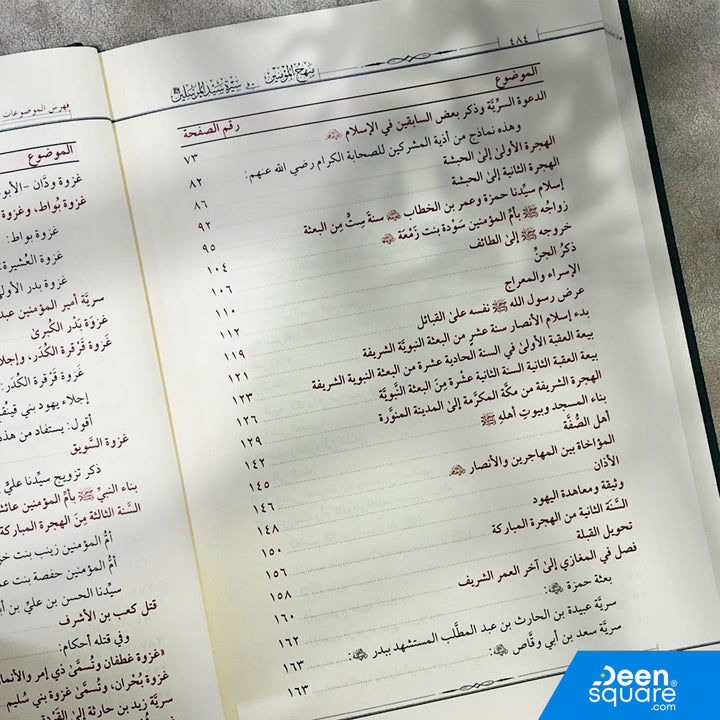 ٤٨٤
منهج المؤمنين في سيرة سيد المرسلين ﷺ
الموضوع رقم الصفحة
الدعوة السرِّيَّة وذكر بعض السابقين في الإسلام ﷺ ٧٣
وهذه نماذج من أذية المشركين للصحابة الكرام رضي الله عنهم: ٨٢
الهجرة الأولىٰ إلىٰ الحبشة ٨٦
الهجرة الثانية إلىٰ الحبشة ٩٢
إسلام سيِّدنا حمزة وعمر بن الخطاب سنةَ سِتٍّ مِن البعثة ٩٥
زواجُه ﷺ بأمِّ المؤمنين سَوْدة بنت زَمْعَة ١٠٤
خروجه ﷺ إلىٰ الطائف ١٠٦
ذكرُ الجنِّ ١١٠
الإسراء والمعراج ١١٢
عرض رسول الله ﷺ نفسه علىٰ القبائل ١١٩
بدء إسلام الأنصار سنة عشرٍ من البعثة النبويَّة الشريفة ١٢١
بيعة العقبة الأولىٰ في السنة الحادية عشرة من البعثة النبوية الشريفة ١٢٣
بيعة العقبة الثانية السنة الثانية عشرة مِنَ البعثة النَّبويَّة ١٢٦
الهجرة الشريفة من مكَّة المكرَّمة إلىٰ المدينة المنوَّرة ١٢٩
بناء المسجد وبيوتِ أهلِهِ ﷺ ١٤٢
أهل الصُّفَّة ١٤٥
المؤاخاة بين المهاجرين والأنصار ١٤٦
الأذان ١٤٨
وثيقة ومعاهدة اليهود ١٥٠
السَّنَة الثانية من الهجرة المباركة ١٥٦
تحويل القبلة ١٥٨
فصل في المغازي إلىٰ آخر العمر الشريف ١٦٠
بعثة حمزة: ١٦٢
سريَّة عبيدة بن الحارث بن عبد المطَّلب المستشهد ببدر: ١٦٣
سريَّة سعد بن أبي وقَّاص: ١٦٣
فهرس الموضوعات
الموضوع
غزوة ودَّان
غزوة بُواط، وغزوة
غزوة بواط:
غزوة العُشيرة:
غزوة بدر الأولىٰ
سريَّة أمير المؤمنين
غزوَة بَدْر الكُبرىٰ
غَزوة قَرْقرة الكُدْر، وإجلا
غَزوة قرقرة الكُدْر:
إجلاء يهود بني
أقول: يستفاد من هذه
غزوة السَّويق
ذكر تزويج سيِّدنا عليٍّ
بناء النبيِّ ﷺ بأمِّ المؤمنين
السَّنة الثالثة مِنَ الهجرة المباركة
أمُّ المؤمنين زينب بنت
أمُّ المؤمنين حفصة بنت
سيِّدنا الحسن بن عليِّ بن
قتل كعب بن الأشرف
وفي قتله أحكام:
غزوة غطفان وتُسمَّىٰ ذي إمر
غزوة بُحْران، وتُسمَّىٰ غزوة بني سُليم
سريَّة زيد بن حارثة إلىٰ القَرْدة
Deen
square®
.com